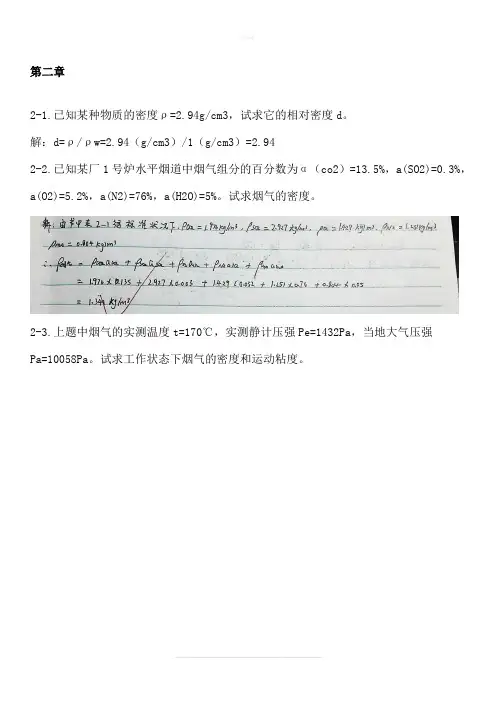 第二章
2-1.已知某种物质的密度ρ=2.94g/cm3，试求它的相对密度d。
解：d=ρ/ρw=2.94（g/cm3）/1（g/cm3）=2.94
2-2.已知某厂1号炉水平烟道中烟气组分的百分数为α（co2）=13.5%，a(SO2)=0.3%，
a(O2)=5.2%，a(N2)=76%，a(H2O)=5%。试求烟气的密度。
解：由书中表2-1知标准状况下，ρco2=1.976kg/m³，ρso2=2.927kg/m³，ρo2=1.429kg/m³，ρN2=1.251kg/m³
ρH2O=0.804kg/m³
= 1.976×0.135 + 2.927×0.003 + 1.429×0.052 + 1.251×0.76 + 0.804×0.05
= 1.341 kg/m³
2-3.上题中烟气的实测温度t=170℃，实测静计压强Pe=1432Pa，当地大气压强
Pa=10058Pa。试求工作状态下烟气的密度和运动粘度。